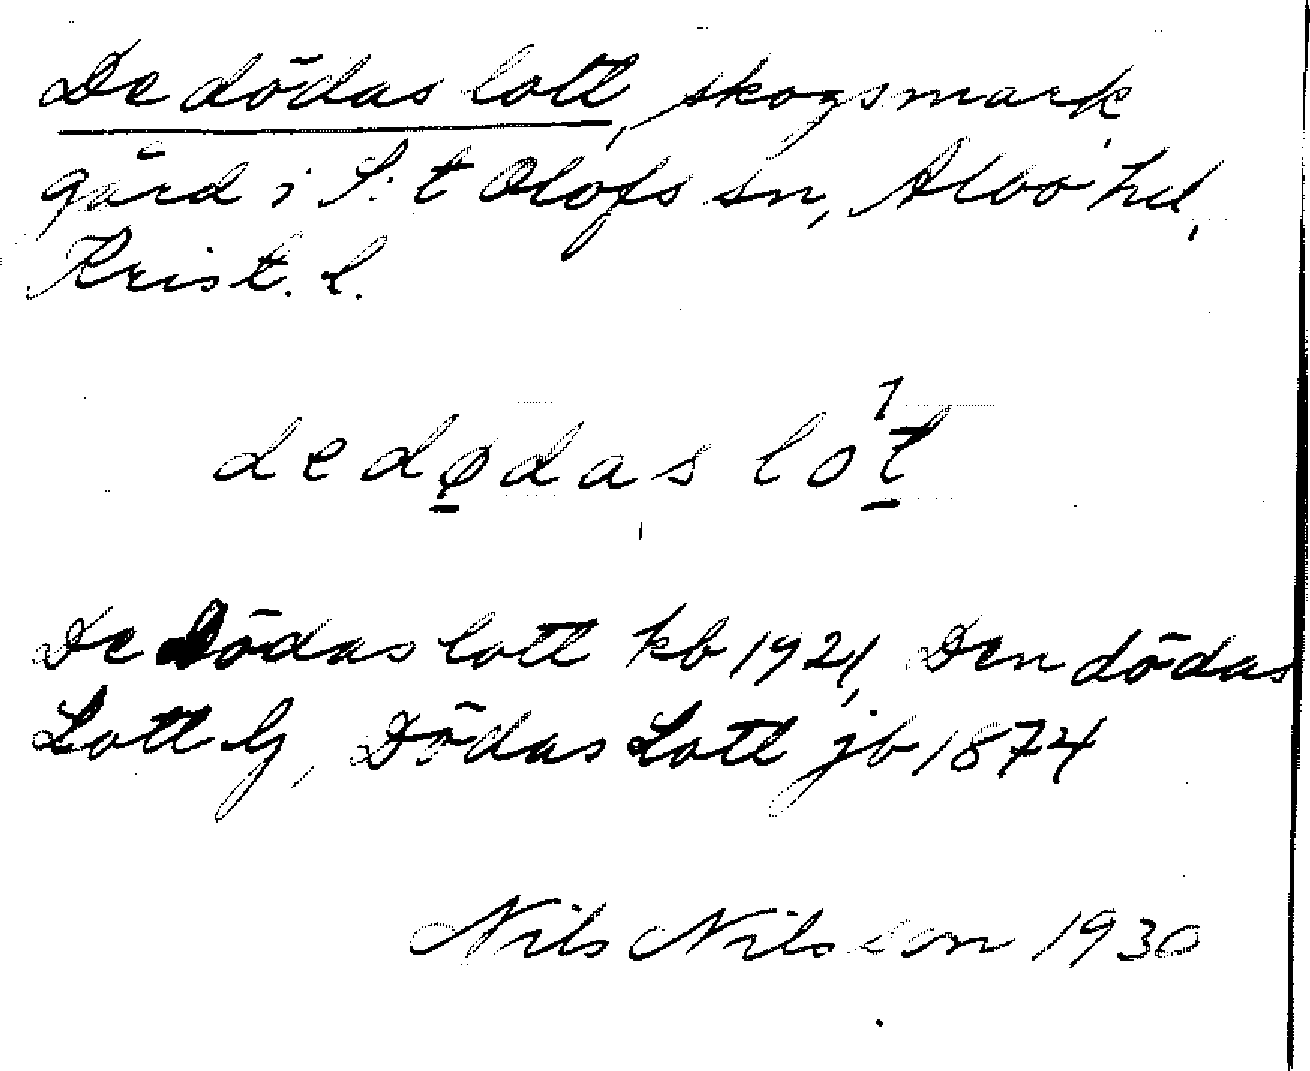 De dödas lott, skogsmark,
gård i S:t Olofs sn, Albo hd,
Krist. l.
dedø̱das lo1ṯ
De Dödas lott kb 1921, Den dödas
Lott Gj, Dödas Lott jb 1874
Nils Nilsson 1930